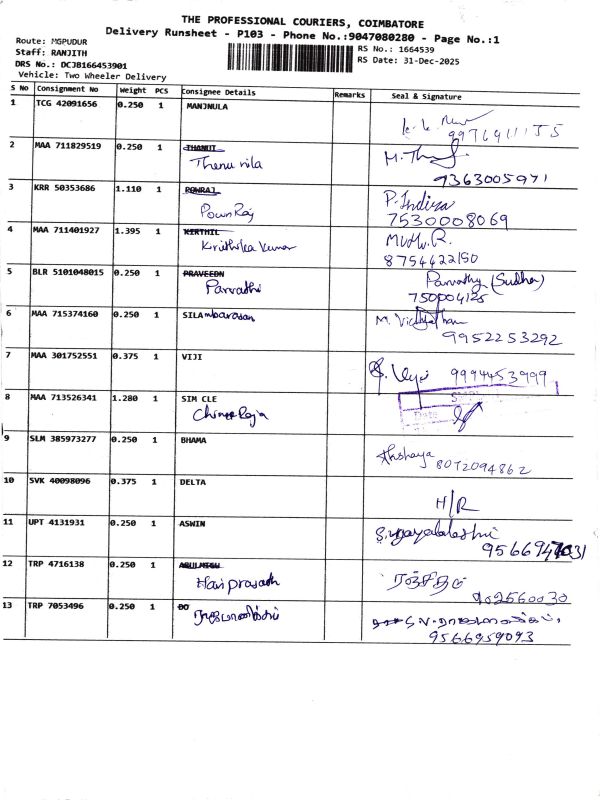 THE PROFESSIONAL COURIERS, COIMBATORE
Delivery Runsheet - P103 - Phone No.:9047080280 - Page No.:1
Route: MGPUDUR
Staff: RANJITH
DRS No.: DCJB166453901
Vehicle: Two Wheeler Delivery
RS No.: 1664539
RS Date: 31-Dec-2025
S No Consignment No Weight PCS Consignee Details Remarks Seal & Signature
1 TCG 42091656 0.250 1 MANJNULA
2 MAA 711829519 0.250 1 THANUT
Thenu nila M. 
9363005971
3 KRR 50353686 1.110 1 POWRAJ
PownRaj P. Indira
7530008069
4 MAA 711401927 1.395 1 KIRTHIL
Krithika Kumar
8754422150
5 BLR 5101048015 0.250 1 PRAVEEDN
Parvathi Parvathy (Sudha)
750004125
6 MAA 715374160 0.250 1 SILAmbarasan
9952253292
7 MAA 301752551 0.375 1 VIJI
9994453999
8 MAA 713526341 1.280 1 SIM CLE
Date
9 SLM 385973277 0.250 1 BHAMA
Akshaya
8072094862
10 SVK 40098096 0.375 1 DELTA
H/R
11 UPT 4131931 0.250 1 ASWIN
12 TRP 4716138 0.250 1
Hariprasath ரஞ்சிதம்
902560030
13 TRP 7053496 0.250 1 DO
9566959093